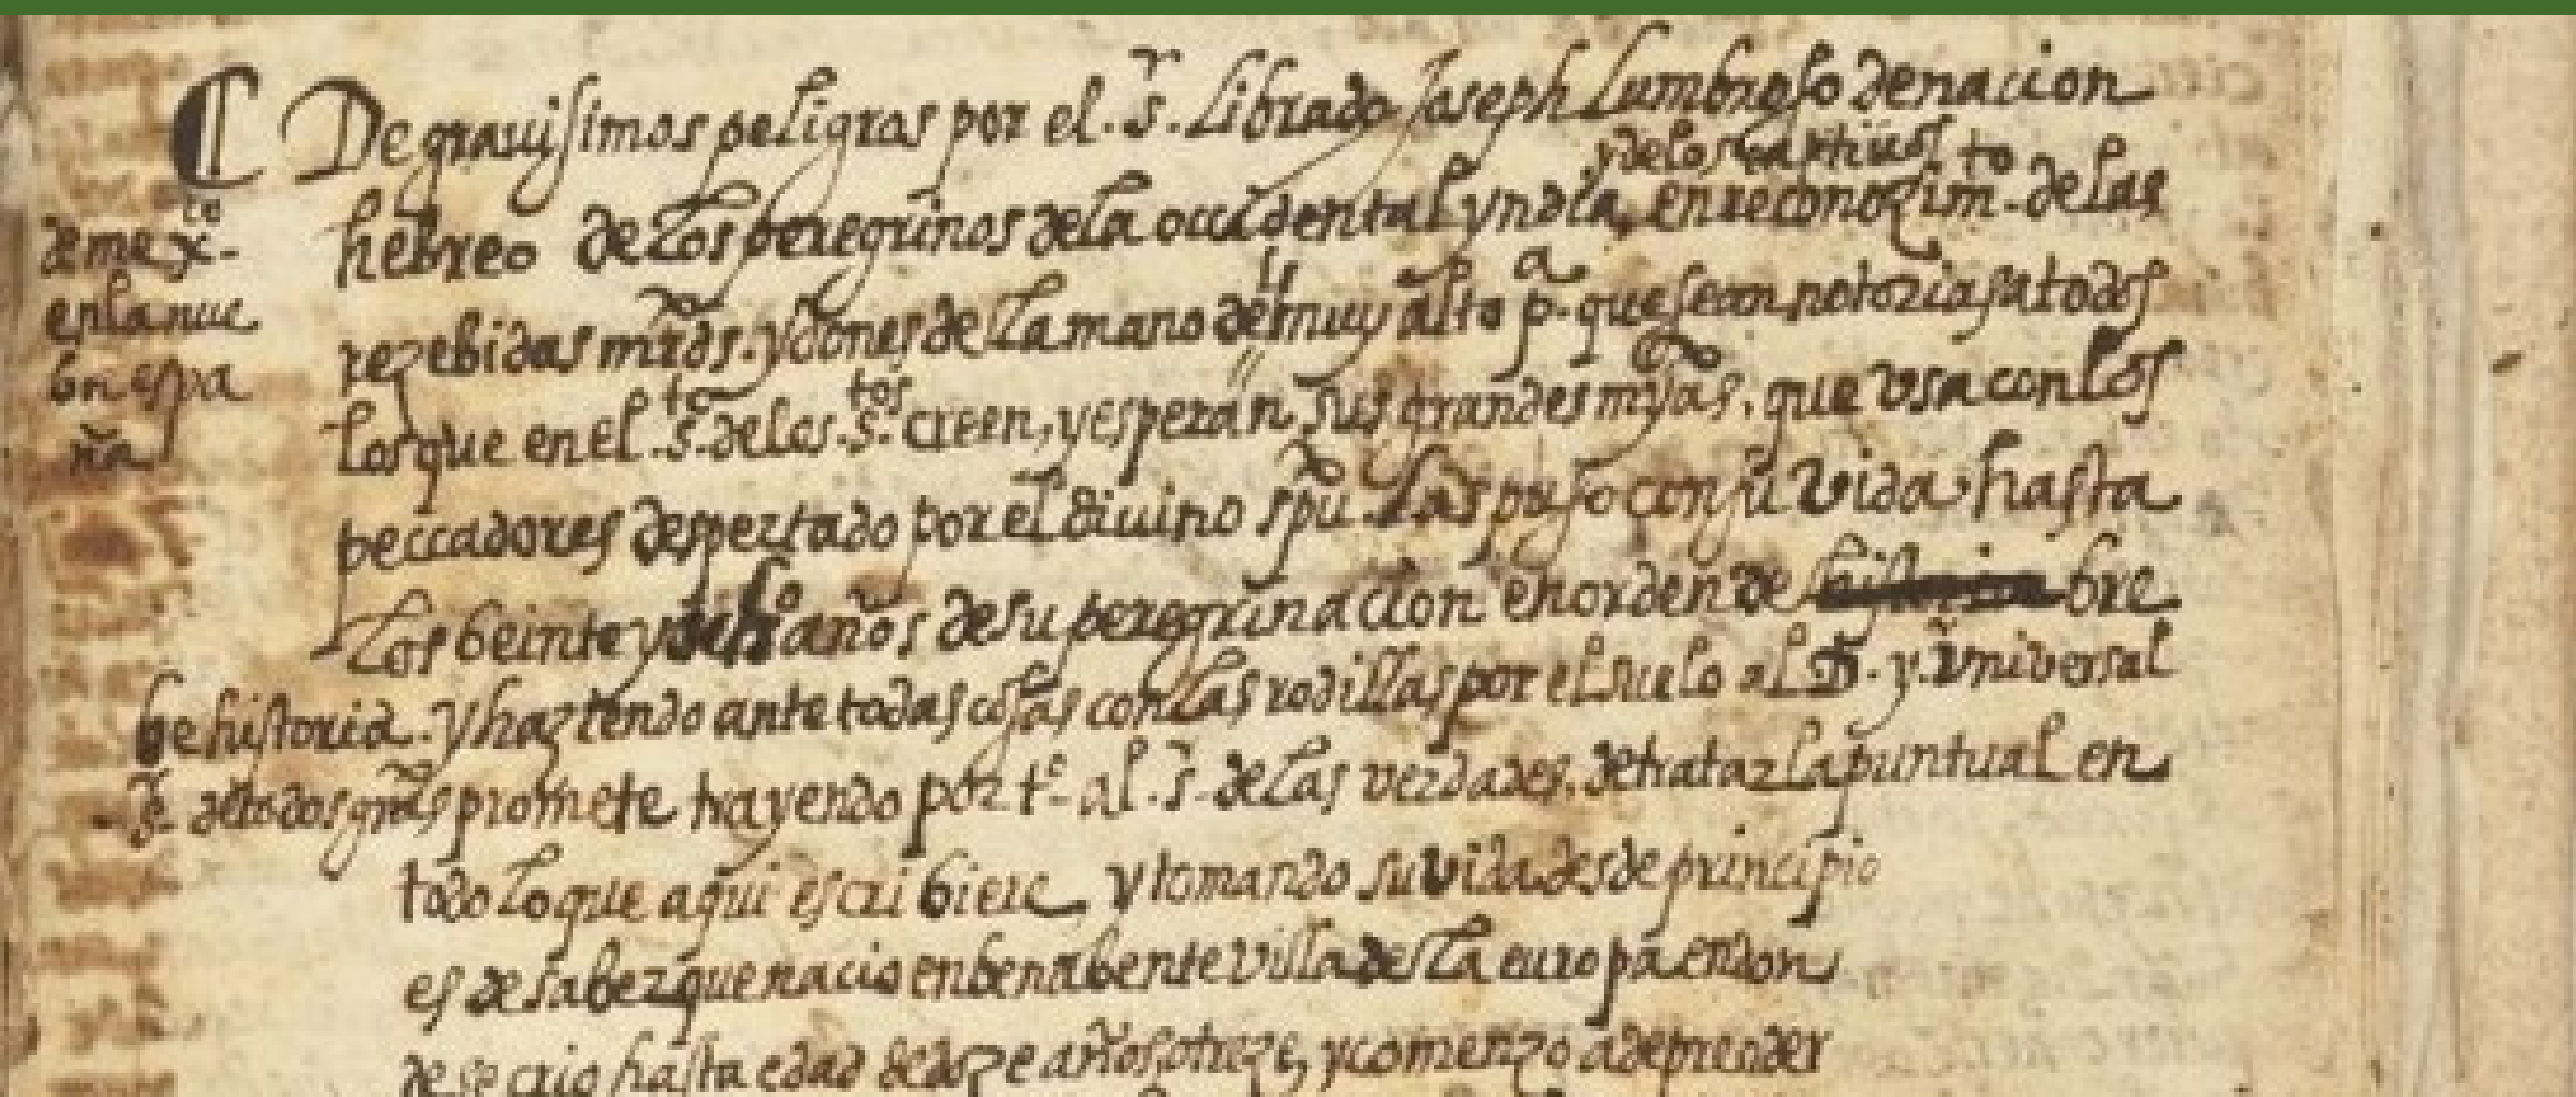 De grauissimos peligros por el .sr. Librado Joseph Lumbroso de nacion
y delos captiuos
hebreo de los peregrinos de la occidental yndia, en reconozimto. de las
de mexco.
en la nue
bn espa
ña
rezebidas mrds. y dones de la mano del muy alto pa. que sean notorias a todos
los que en el .sto. de los .stos. creen, y esperan sus grandes myas. que vsa con los
peccadores despertado por el diuino spu. las puso con su vida hasta
los beinte y años de su peregrinacion en orden de bre
be historia. y haziendo ante todas cosas con las rodillas por el suelo al D. y vniversal
s. de todos gras promete trayendo por to. al .s. de las verdades. de tratar la puntual en
todo lo que aqui escribiere y tomando su vida desde principio
es de saber que nacio en benabente villa de la europa en don
de se crio hasta edad de doze años o treze, y comenzo a deprender